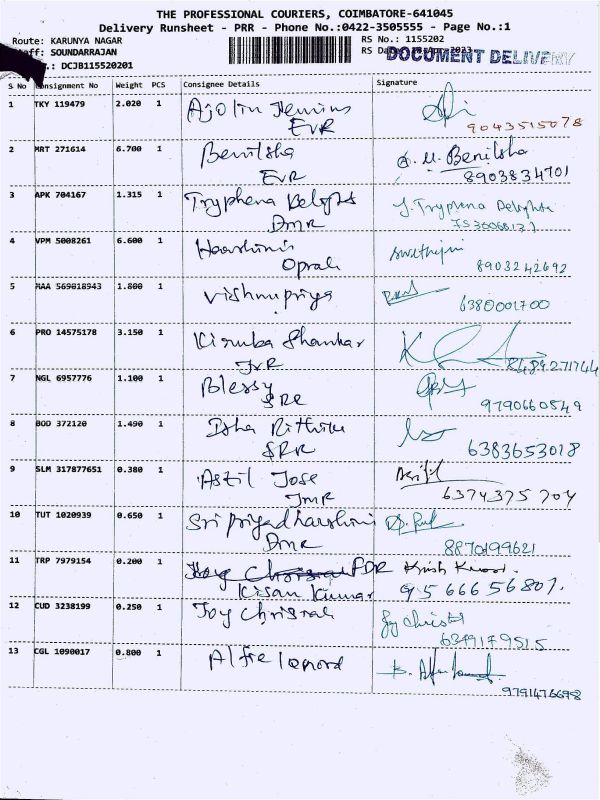 THE PROFESSIONAL COURIERS, COIMBATORE-641045
Delivery Runsheet - PRR - Phone No.:0422-3505555 - Page No.:1
Route: KARUNYA NAGAR RS No.: 1155202
SOUNDARRAJAN RS DOCUMENT DELIVERY
.: DCJB115520201
S No Consignment No Weight PCS Consignee Details Signature
1 TKY 119479 2.020 1 Ajolin Jemins
EVR 9043515078
2 MRT 271614 6.700 1 Benilsha Benilsha
EVR 8903834701
3 APK 704167 1.315 1 Tryphena Delights J. Tryphena
DMR
4 VPM 5008261 6.600 1 Haarshini
8903242692
5 MAA 569018943 1.800 1 Vishnupriya 6380001700
6 PRO 14575178 3.150 1 Kiruba Shankar
JVR 8489271744
7 NGL 6957776 1.100 1 Blessy
9790660549
8 BOD 372120 1.490 1 Rithika
SRR 6383653018
9 SLM 317877651 0.380 1 Astil Jose
JMR 6374375704
10 TUT 1020939 0.650 1 Sri priyadharshini
DMR 8870199621
11 TRP 7979154 0.200 1 PDR
Kisan Kumar
12 CUD 3238199 0.250 1 Joy
6349179515
13 CGL 1090017 0.800 1
9791476698